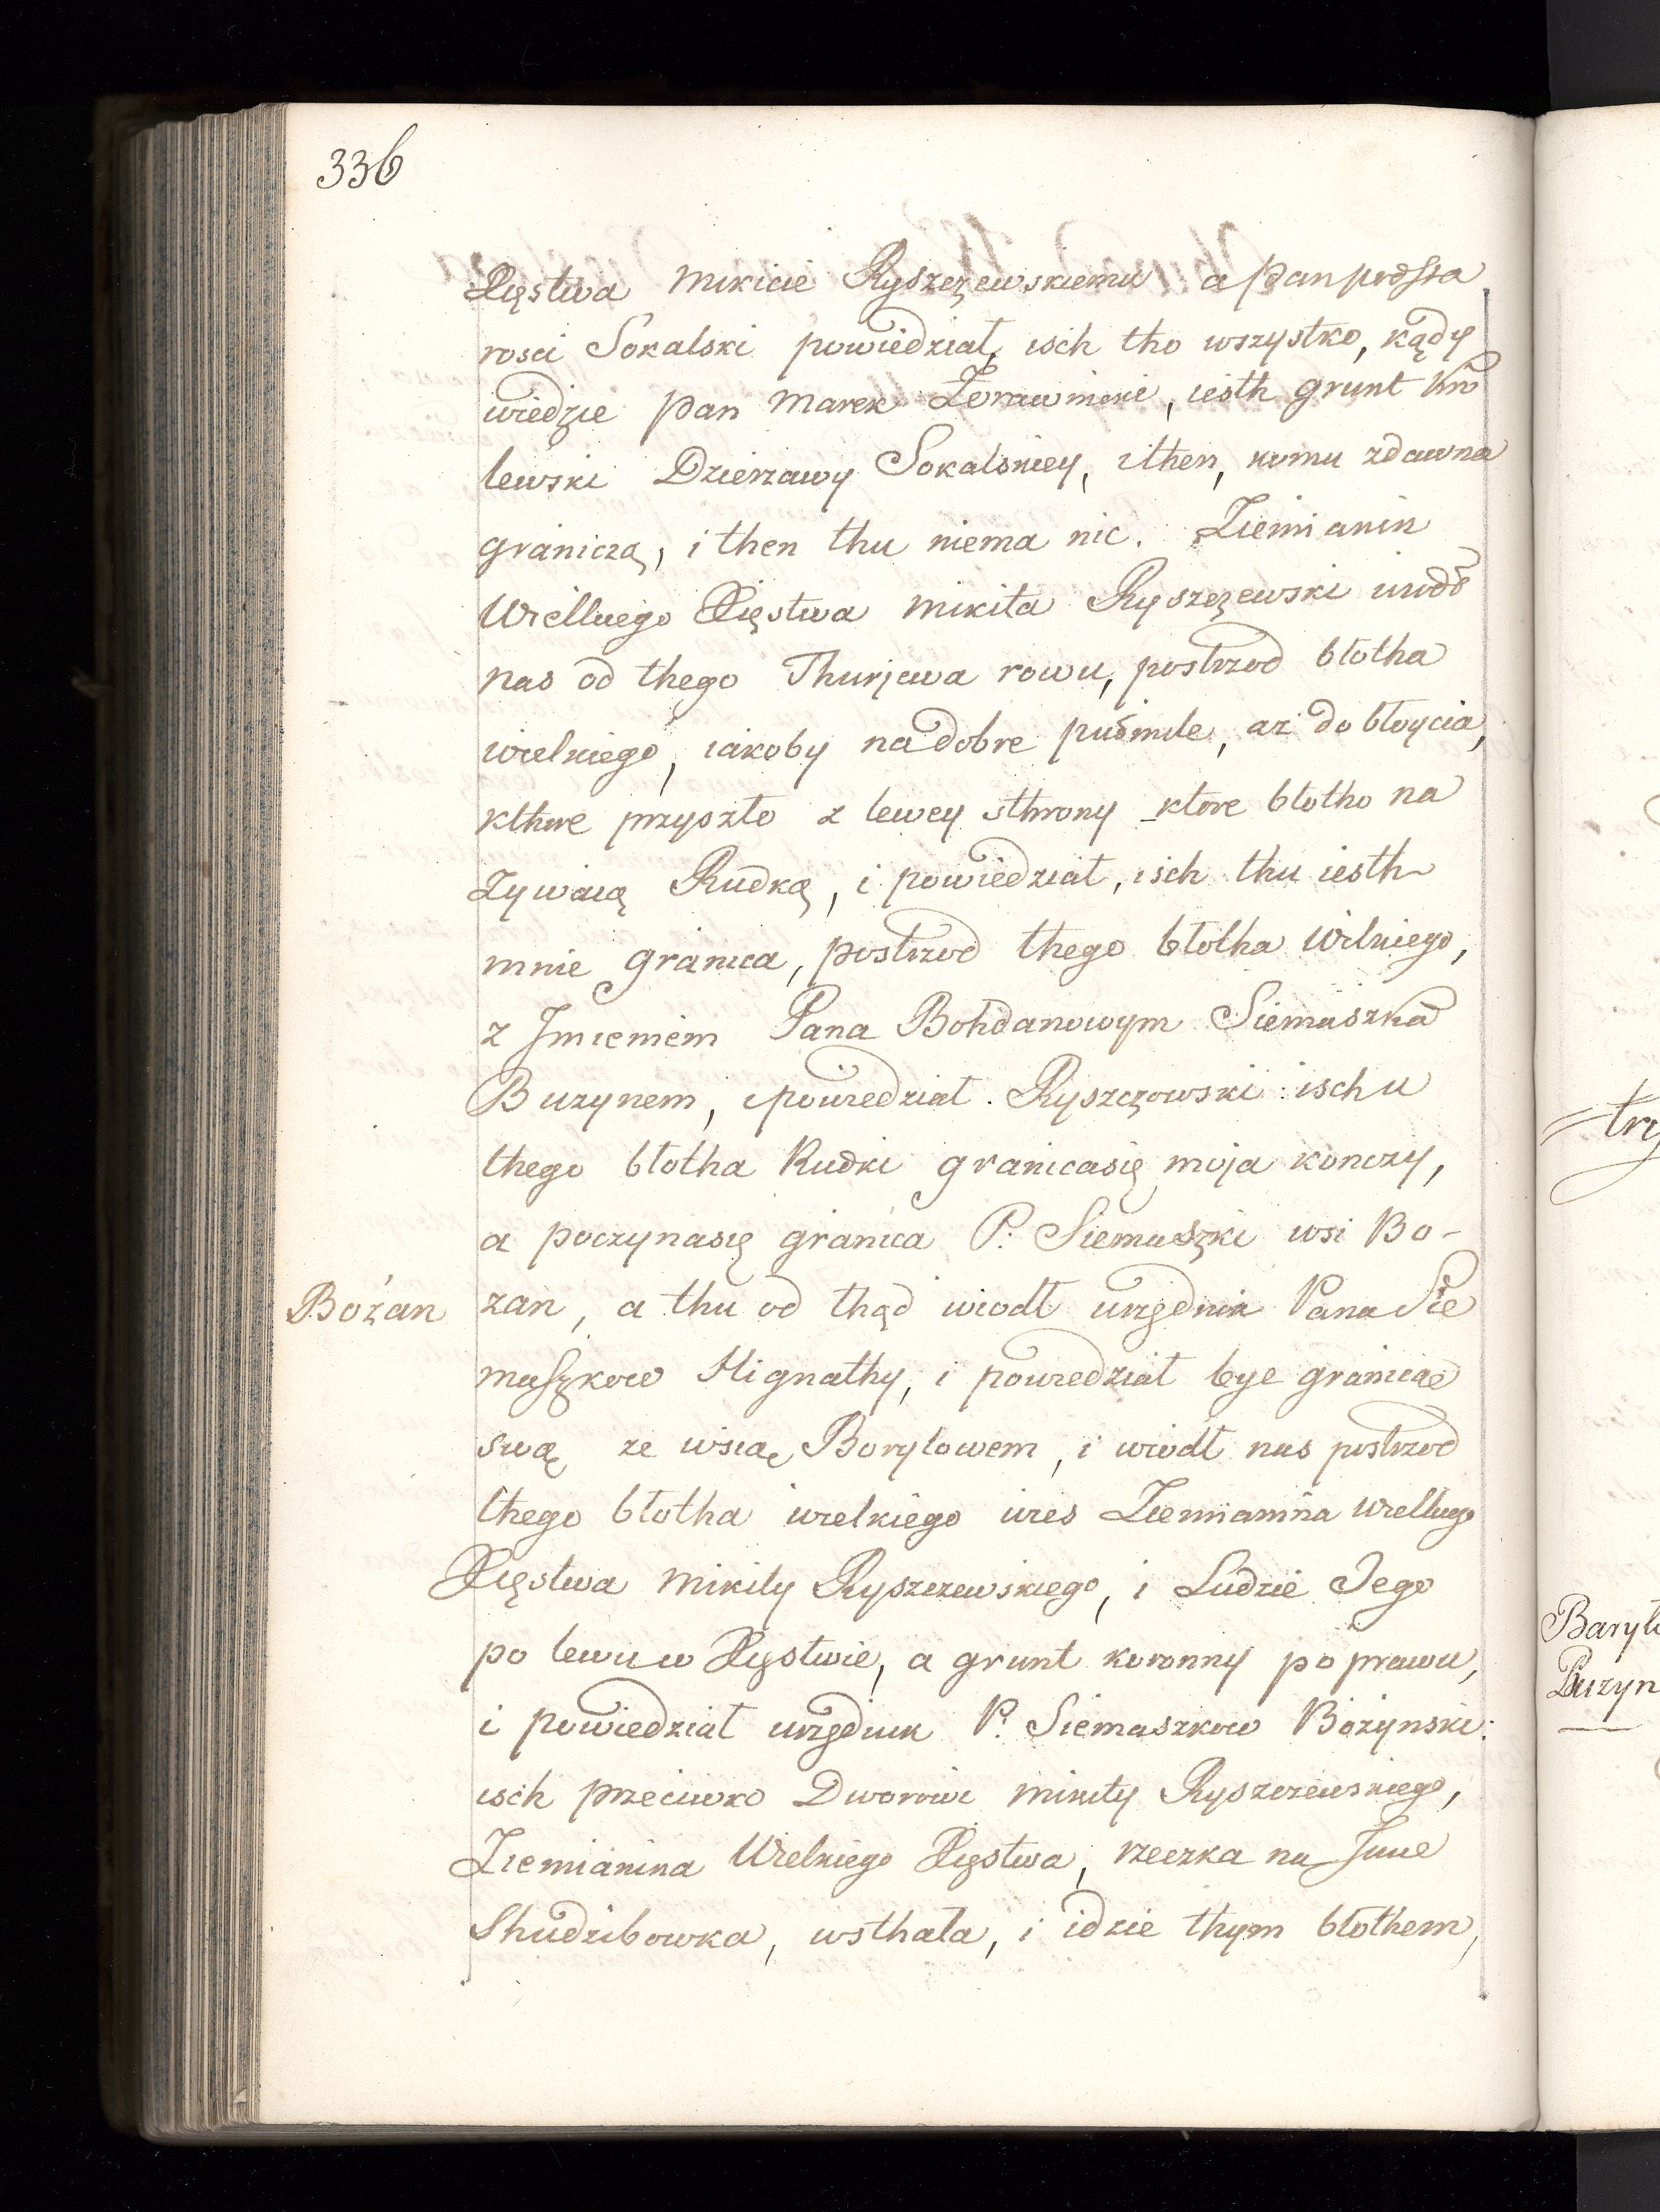 336
Xięstwa Mikicie Ryszczewskiemu a pan podsta
rosci Sokalski powiedział, isch tho wszystko, kądy
wiedzie pan Marek Zorawinski, iesth grunt kro
lewski Dzierzawy Sokalskiey, ithen, komu zdawna
graniczą, i then thu niema nic. Ziemianin
Wielkiego Xięstwa Mikita Ryszczewski uwodł
nas od thego Thurjewa rowu, postrzod błotha
wielkiego, iakoby nadobre pułmile, aż do błoycia,
kthore przyszło z lewey sthrony ktore błotho na
zywaią Rudką, i powiedział, isch thu iesth
mnie granica, postrzod thego błotha wilkiego,
z Jmieniem Pana Bohdanowym Siemaszka
Buzynem, i powiedział Ryszczowski isch u
thego błotha Rudki granicasię moja konczy,
a poczynasię granica P. Siemaszki wsi Bo-
Bożan
zan, a thu od thąd wiodł urzędnik Pana Sie
maszkow Hignathy, i powiedział bye granicae
swą ze wsią Borylowem, i wiodł nas postrzod
thego błotha wielkiego wies Ziemianina wielkiego
Xięstwa Mikity Ryszczewskiego, i Ludzie Jego
po lewu w Xięstwie, a grunt koronny po prawu,
i powiedział urzędnik P. Siemaszkow Bożynski:
isch przeciwko Dworowi Mikity Ryszczewskiego,
Ziemianina Wielkiego Xięstwa, rzeczka na Jmie
Sthudzibowka, wsthała, i idzie thym błothem,
try
Baryło
Buzyn